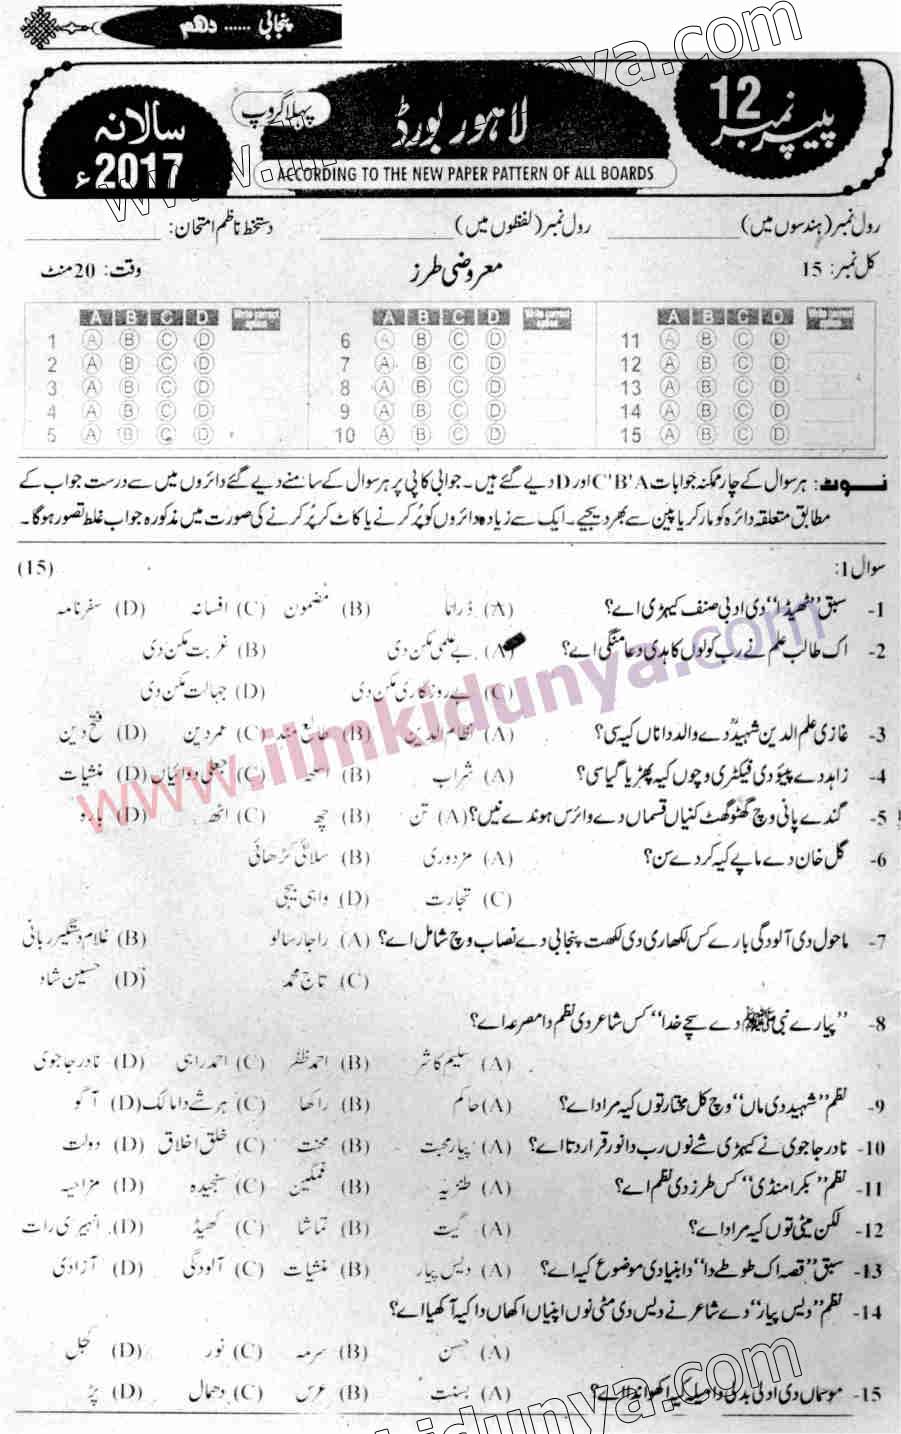 پنجابی ...... دہم
پیپر نمبر 12
لاہور بورڈ
پہلا گروپ
سالانہ 2017ء
ACCORDING TO THE NEW PAPER PATTERN OF ALL BOARDS
رول نمبر (ہندسوں میں) ________ رول نمبر (لفظوں میں) ________ دستخط ناظم امتحان: ________
کل نمبر: 15 معروضی طرز وقت: 20 منٹ
A B C D Write correct option A B C D Write correct option A B C D Write correct option
1 A B C D 6 A B C D 11 A B C D
2 A B C D 7 A B C D 12 A B C D
3 A B C D 8 A B C D 13 A B C D
4 A B C D 9 A B C D 14 A B C D
5 A B C D 10 A B C D 15 A B C D
نوٹ: ہر سوال کے چار ممکنہ جوابات A'B'C اور D دیے گئے ہیں۔ جوابی کاپی پر ہر سوال کے سامنے دیے گئے دائروں میں سے درست جواب کے
مطابق متعلقہ دائرہ کو مارکر یا پین سے بھر دیجیے۔ ایک سے زیادہ دائروں کو پُر کرنے یا کاٹ کر پُر کرنے کی صورت میں مذکورہ جواب غلط تصور ہوگا۔
سوال 1: (15)
1- سبق "ٹھیڈا" دی ادبی صنف کیہڑی اے؟ (A) ڈراما (B) مضمون (C) افسانہ (D) سفرنامہ
2- اک طالب علم نے رب کولوں کاہدی دعا منگی اے؟ (A) بے علمی مکن دی (B) غربت مکن دی
(C) بے روزگاری مکن دی (D) جہالت مکن دی
3- غازی علم الدین شہیدؒ دے والد دا ناں کیہ سی؟ (A) نظام الدین (B) طالع مند (C) عمر دین (D) فتح دین
4- زاہد دے پیؤ دی فیکٹری وچوں کیہ پھڑیا گیا سی؟ (A) شراب (B) اسلحہ (C) جعلی دوائیاں (D) منشیات
5- گندے پانی وچ گھٹو گھٹ کنیاں قسماں دے وائرس ہوندے نیں؟ (A) تن (B) چھ (C) اٹھ (D) باره
6- گل خان دے ماپے کیہ کردے سن؟ (A) مزدوری (B) سلائی کڑھائی
(C) تجارت (D) واہی بیجی
7- ماحول دی آلودگی بارے کس لکھاری دی لکھت پنجابی دے نصاب وچ شامل اے؟ (A) راجا رسالو (B) غلام دستگیر ربانی
(C) تاج محمد (D) حسین شاد
8- "پیارے نبی ﷺ دے سچے خدا" کس شاعر دی نظم دا مصرعہ اے؟
(A) سلیم کاشر (B) احمد ظفر (C) احمد راہی (D) نادر جاجوی
9- نظم "شہید دی ماں" وچ کل مختار توں کیہ مراد اے؟ (A) حاکم (B) راکھا (C) ہر شے دا مالک (D) آگو
10- نادر جاجوی نے کیہڑی شے نوں رب دا نور قرار دتا اے؟ (A) پیار محبت (B) محنت (C) خلق اخلاق (D) دولت
11- نظم "بکرا منڈی" کس طرز دی نظم اے؟ (A) طنزیہ (B) غمگین (C) سنجیدہ (D) مزاحیہ
12- لکن میٹی توں کیہ مراد اے؟ (A) گیت (B) تماشا (C) کھیڈ (D) انہیری رات
13- سبق "قصہ اک طوطے دا" دا بنیادی موضوع کیہ اے؟ (A) دیس پیار (B) منشیات (C) آلودگی (D) آزادی
14- نظم "دیس پیار" دے شاعر نے دیس دی مٹی نوں اپنیاں اکھاں دا کیہ آکھیا اے؟
(A) حسن (B) سرمہ (C) نور (D) کجل
15- موسماں دی ادلی بدلی دا میلہ کیہ اکھواندا اے؟ (A) بسنت (B) عرس (C) دھمال (D) پڑ
www.ilmkidunya.com